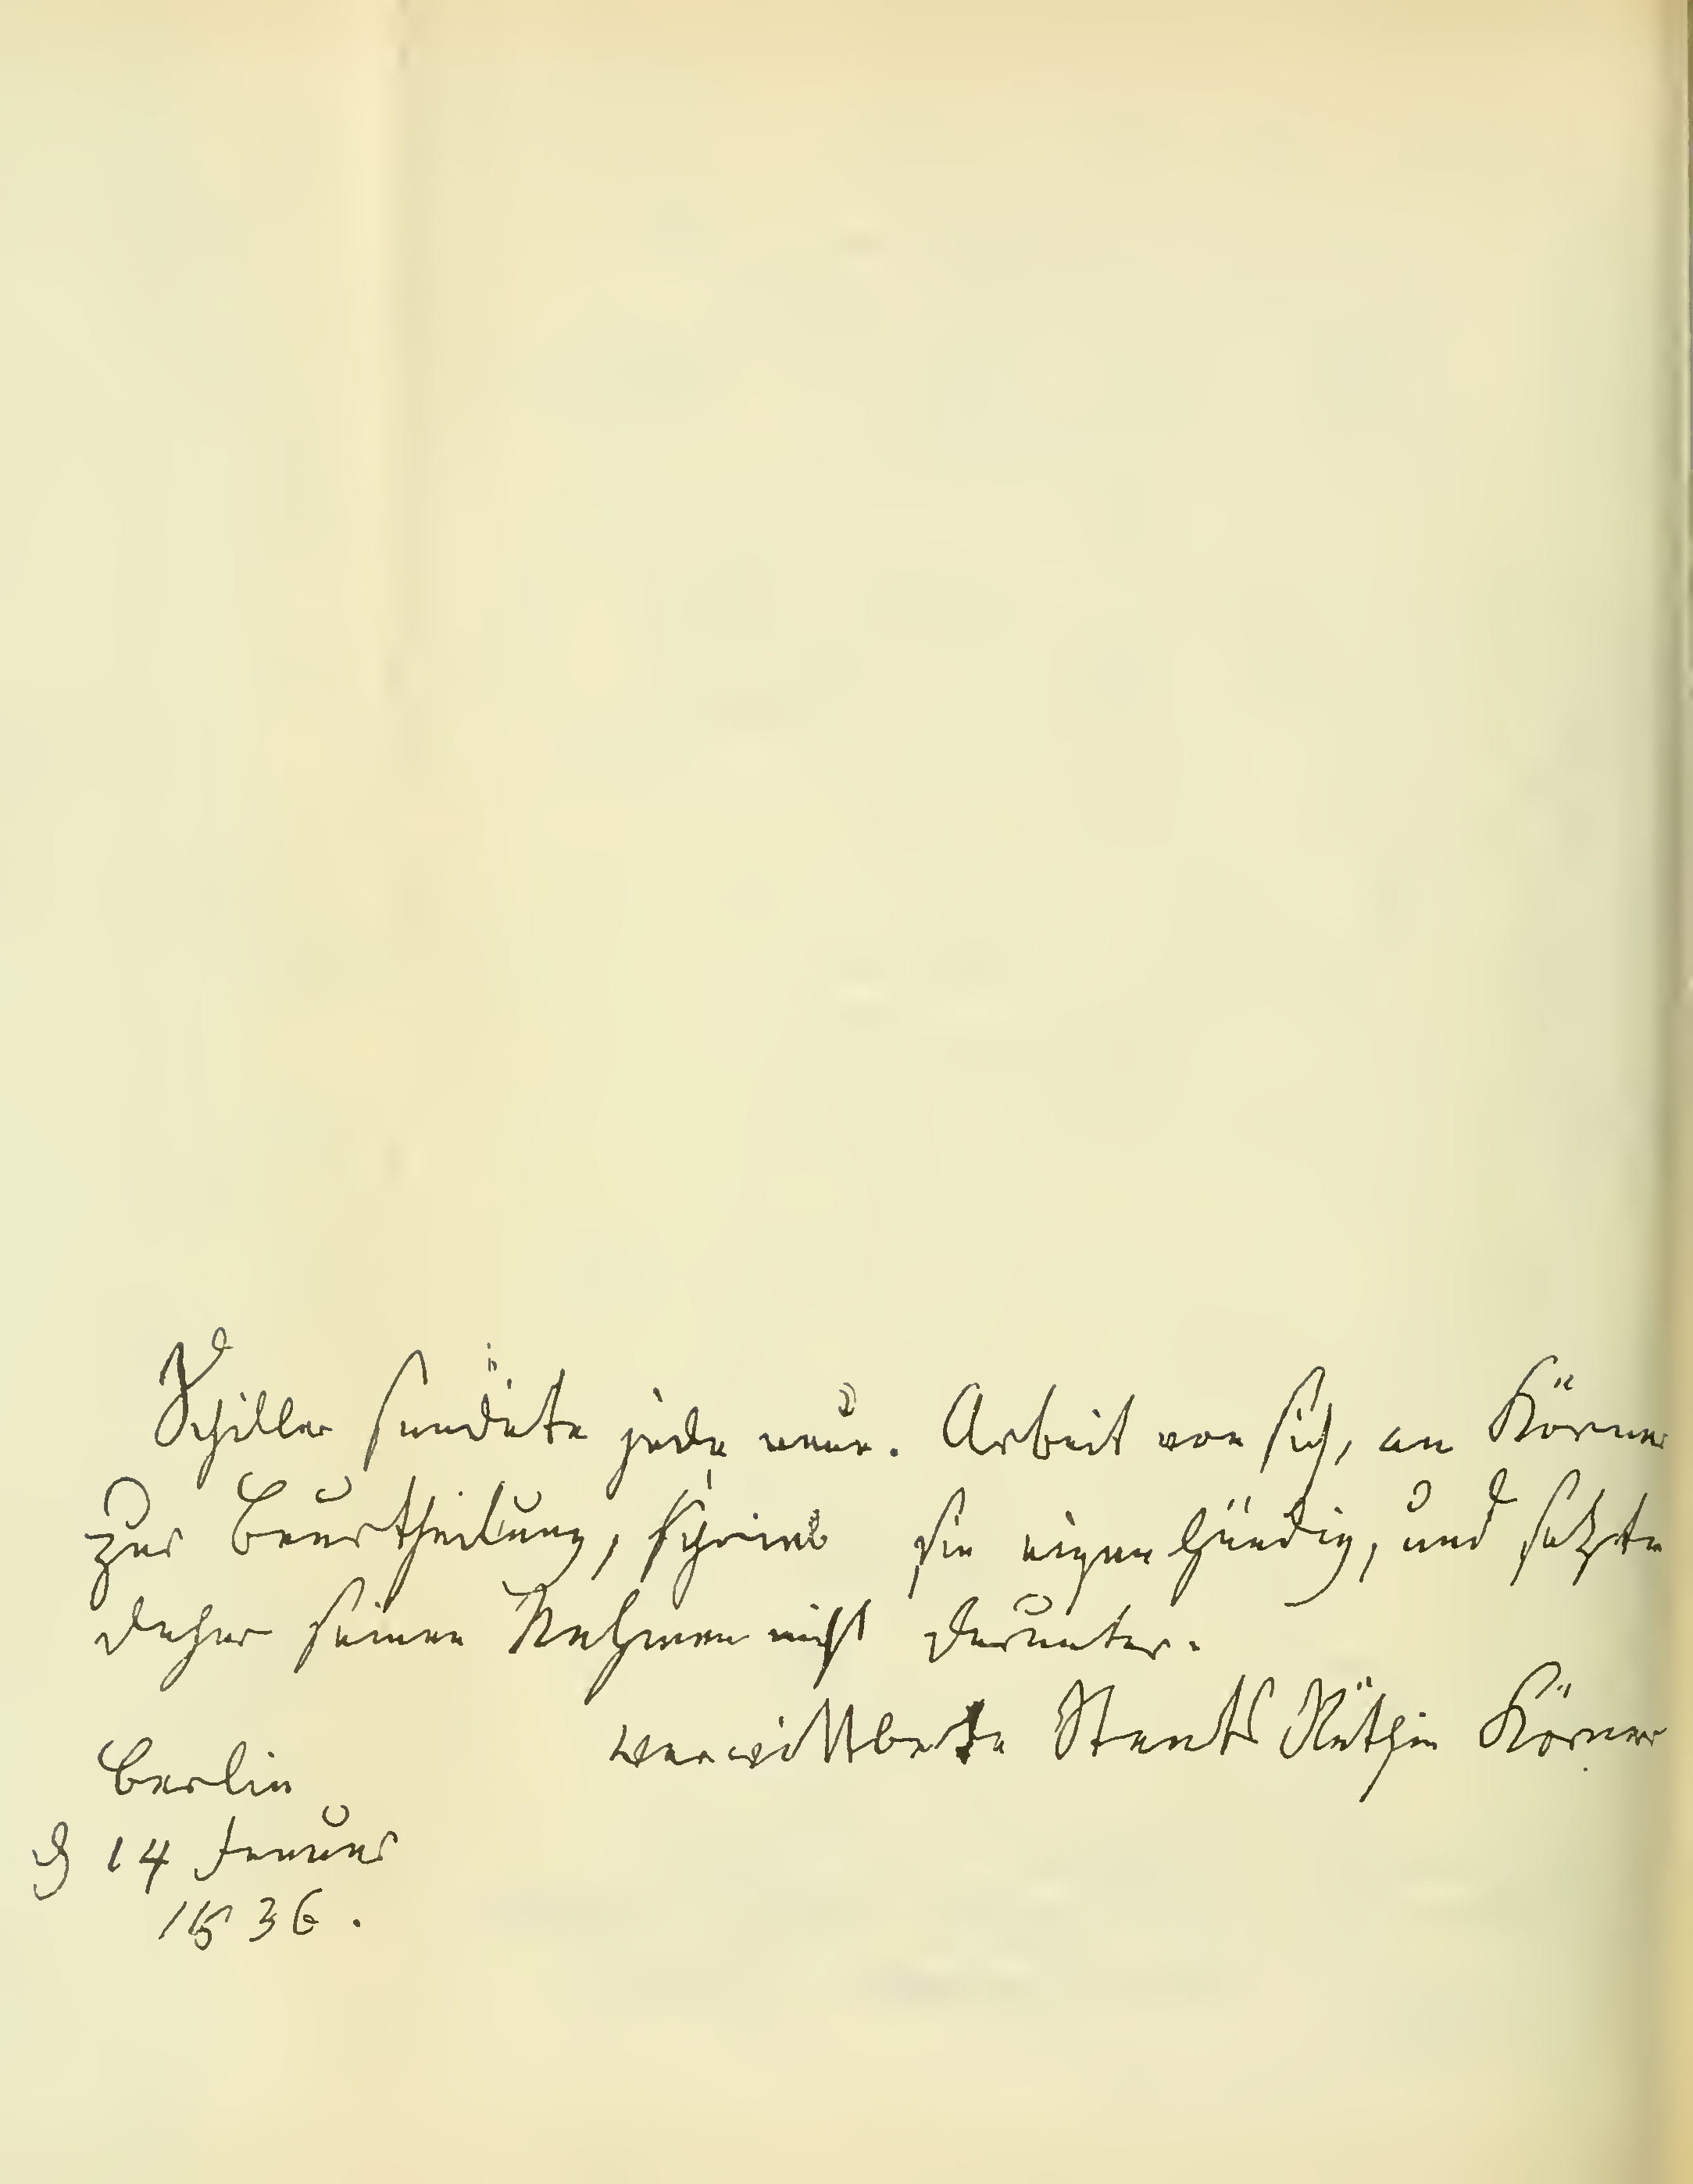 Schiller sendete jede neue. Arbeit von sich, an Körner
zur Beurtheilung, schrieb sie eigenhändig, und setzte
daher seinen Nahmen nicht darunter.
verwittbete Staats Räthin Körner
Berlin
d 14 Januar
1836.